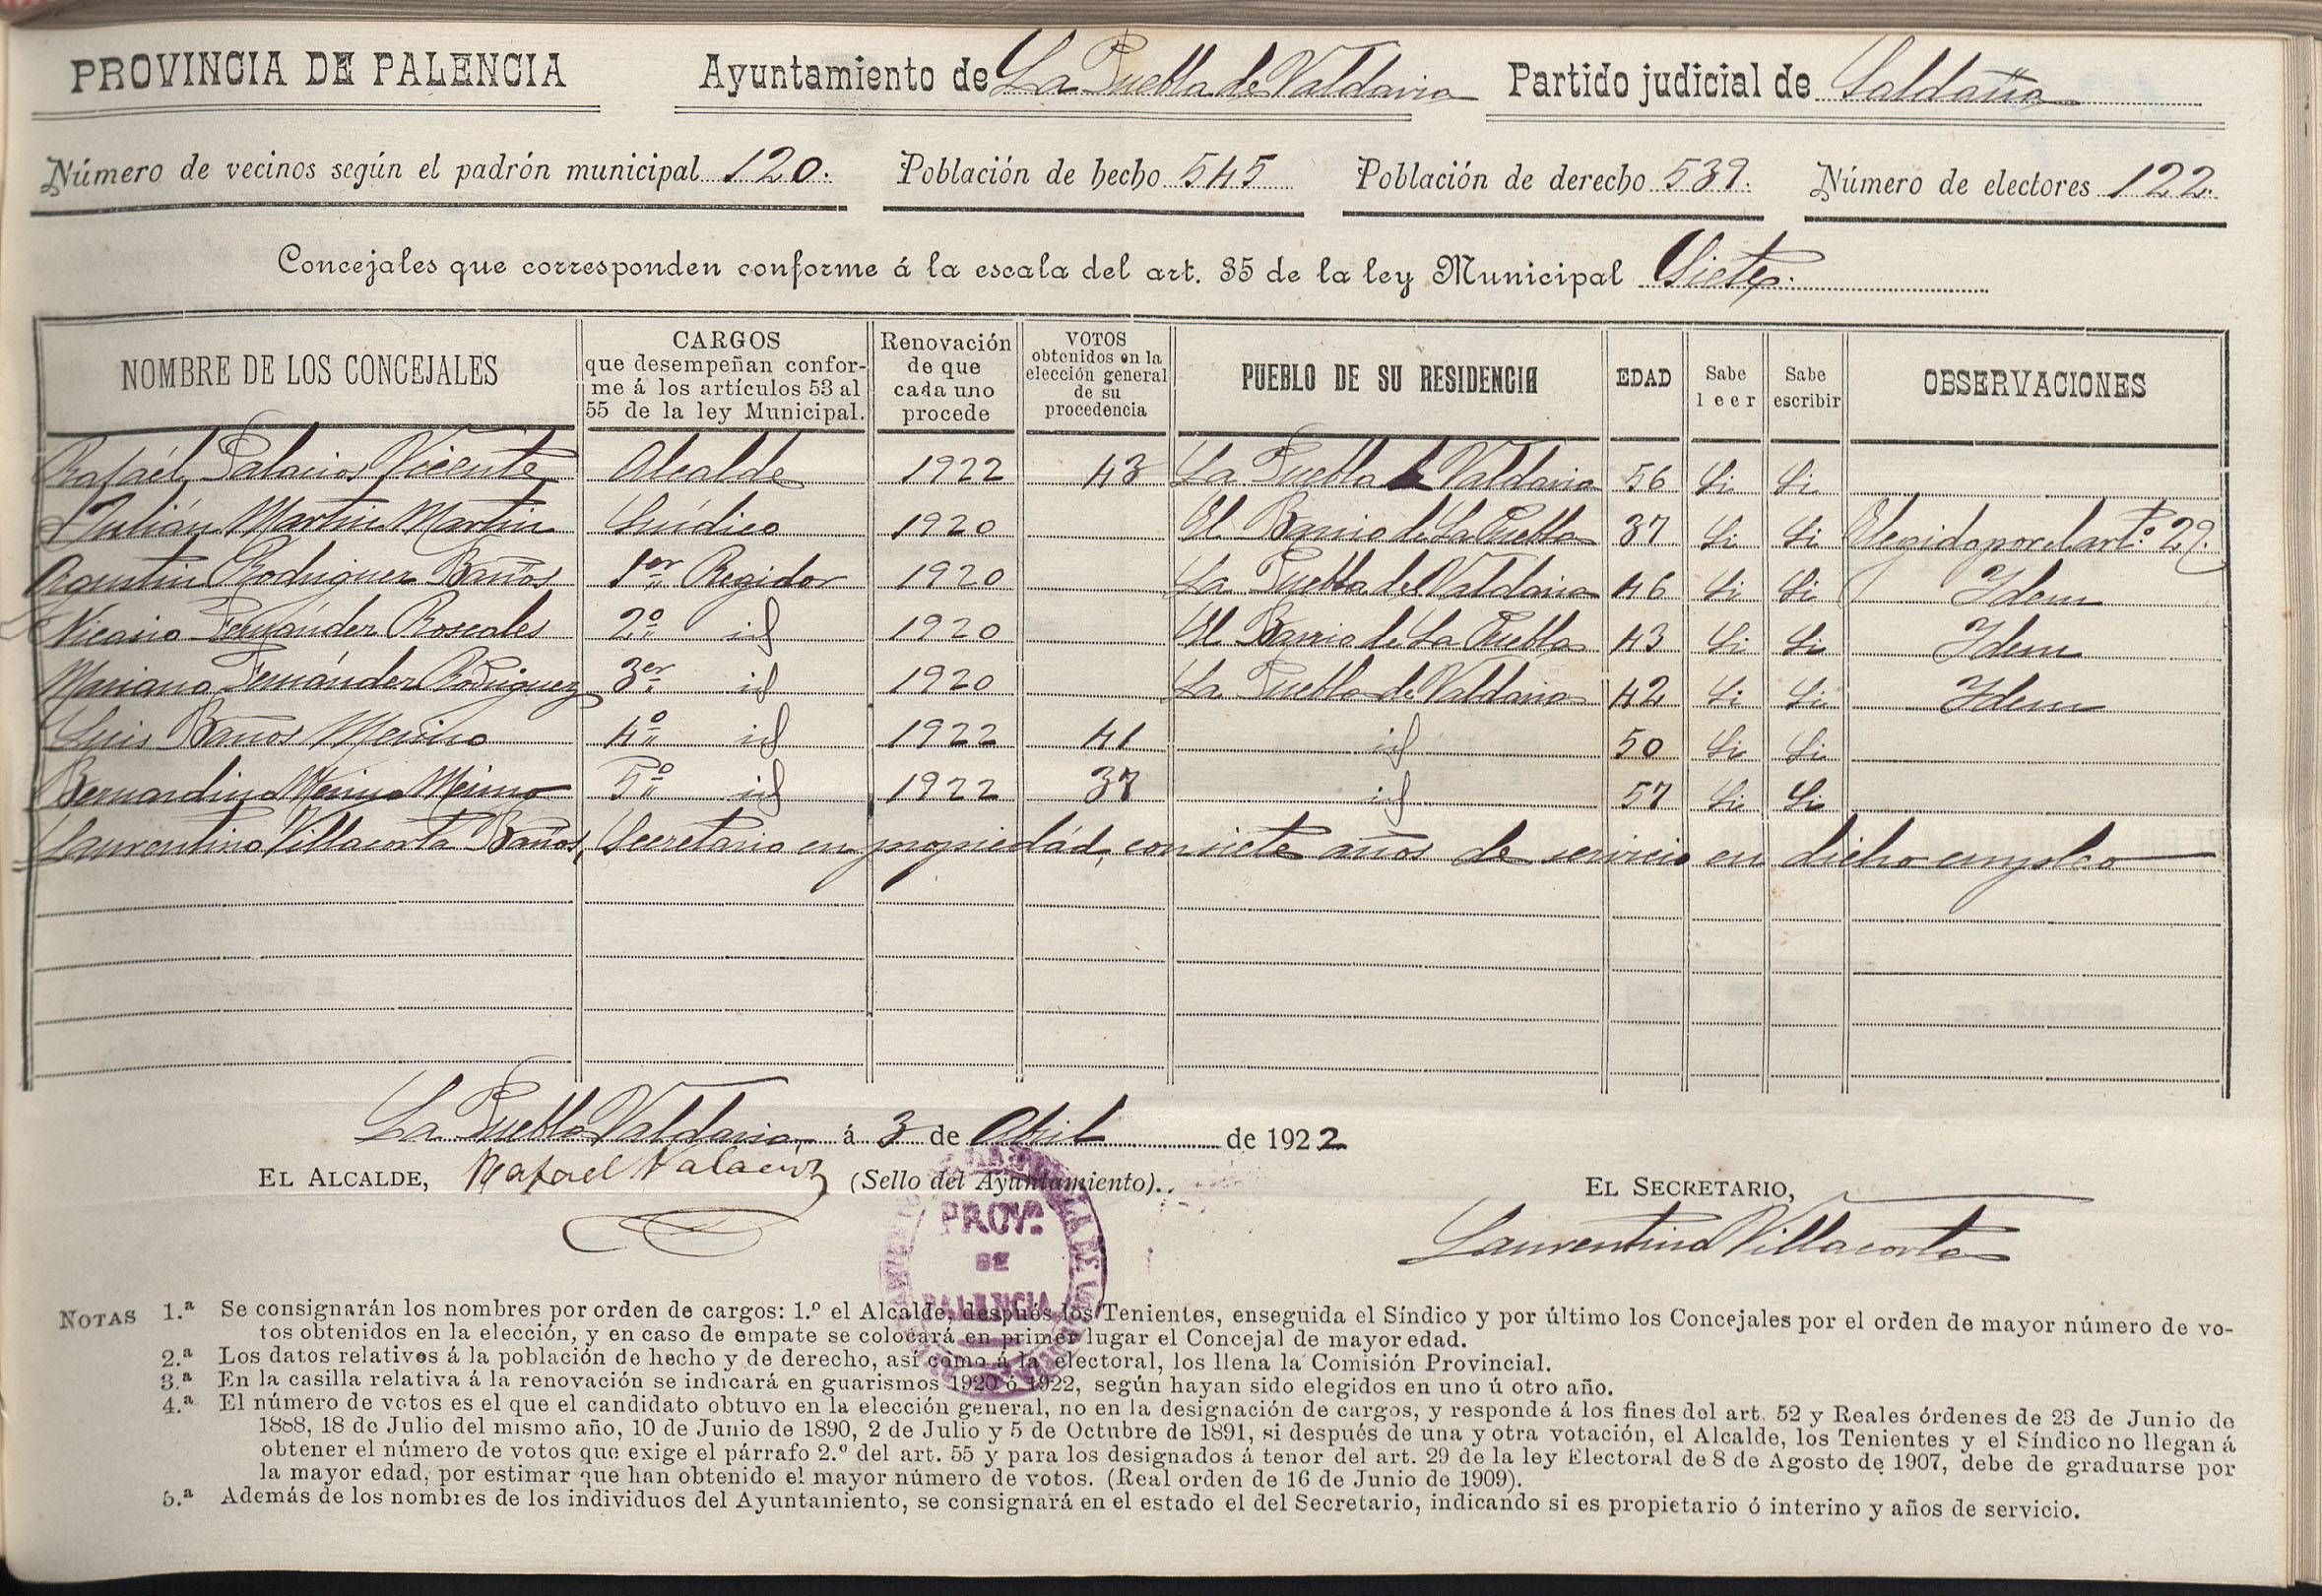 PROVINCIA DE PALENCIA Ayuntamiento de La Puebla de Valdavia Partido judicial de Saldaña
Número de vecinos según el padrón municipal 120. Población de hecho 545 Población de derecho 539. Número de electores 122.
Concejales que corresponden conforme á la escala del art. 35 de la ley Municipal Siete.
NOMBRE DE LOS CONCEJALES
CARGOS
que desempeñan confor-
me á los artículos 53 al
55 de la ley Municipal.
Renovación
de que
cada uno
procede
VOTOS
obtenidos en la
elección general
de su
procedencia
PUEBLO DE SU RESIDENCIA
EDAD
Sabe
leer
Sabe
escribir
OBSERVACIONES
Rafaél Palacios Vicente Alcalde 1922 43 La Puebla de Valdavia 56 Si Si
Julián Martin Martin Síndico 1920 El Barrio de La Puebla 37 Si Si Elegido por el artº 29.
Agustin Rodriguez Baños 1er Regidor 1920 La Puebla de Valdavia 46 Si Si Idem
Nicasio Fernández Roscales 2º id 1920 El Barrio de La Puebla 43 Si Si Idem
Mariano Fernández Rodriguez 3er id 1920 La Puebla de Valdavia 42 Si Si Idem
Luis Baños Merino 4º id 1922 41 id 50 Si Si
Bernardino Merino Merino 5º id 1922 37 id 57 Si Si
Laurentino Villacorta Baños, Secretario en propiedád, con siete años de servicio en dicho empleo
La Puebla Valdavia á 3 de Abril de 1922
EL ALCALDE, Rafael Palacios (Sello del Ayuntamiento). EL SECRETARIO,
Laurentino Villacorta
PROVª
DE
PALENCIA
NOTAS 1.ª Se consignarán los nombres por orden de cargos: 1.º el Alcalde, después los Tenientes, enseguida el Síndico y por último los Concejales por el orden de mayor número de vo-
tos obtenidos en la elección, y en caso de empate se colocará en primer lugar el Concejal de mayor edad.
2.ª Los datos relativos á la población de hecho y de derecho, así como á la electoral, los llena la Comisión Provincial.
3.ª En la casilla relativa á la renovación se indicará en guarismos 1920 ó 1922, según hayan sido elegidos en uno ú otro año.
4.ª El número de votos es el que el candidato obtuvo en la elección general, no en la designación de cargos, y responde á los fines del art. 52 y Reales órdenes de 23 de Junio de
1888, 18 de Julio del mismo año, 10 de Junio de 1890, 2 de Julio y 5 de Octubre de 1891, si después de una y otra votación, el Alcalde, los Tenientes y el Síndico no llegan á
obtener el número de votos que exige el párrafo 2.º del art. 55 y para los designados á tenor del art. 29 de la ley Electoral de 8 de Agosto de 1907, debe de graduarse por
la mayor edad, por estimar que han obtenido el mayor número de votos. (Real orden de 16 de Junio de 1909).
5.ª Además de los nombres de los individuos del Ayuntamiento, se consignará en el estado el del Secretario, indicando si es propietario ó interino y años de servicio.